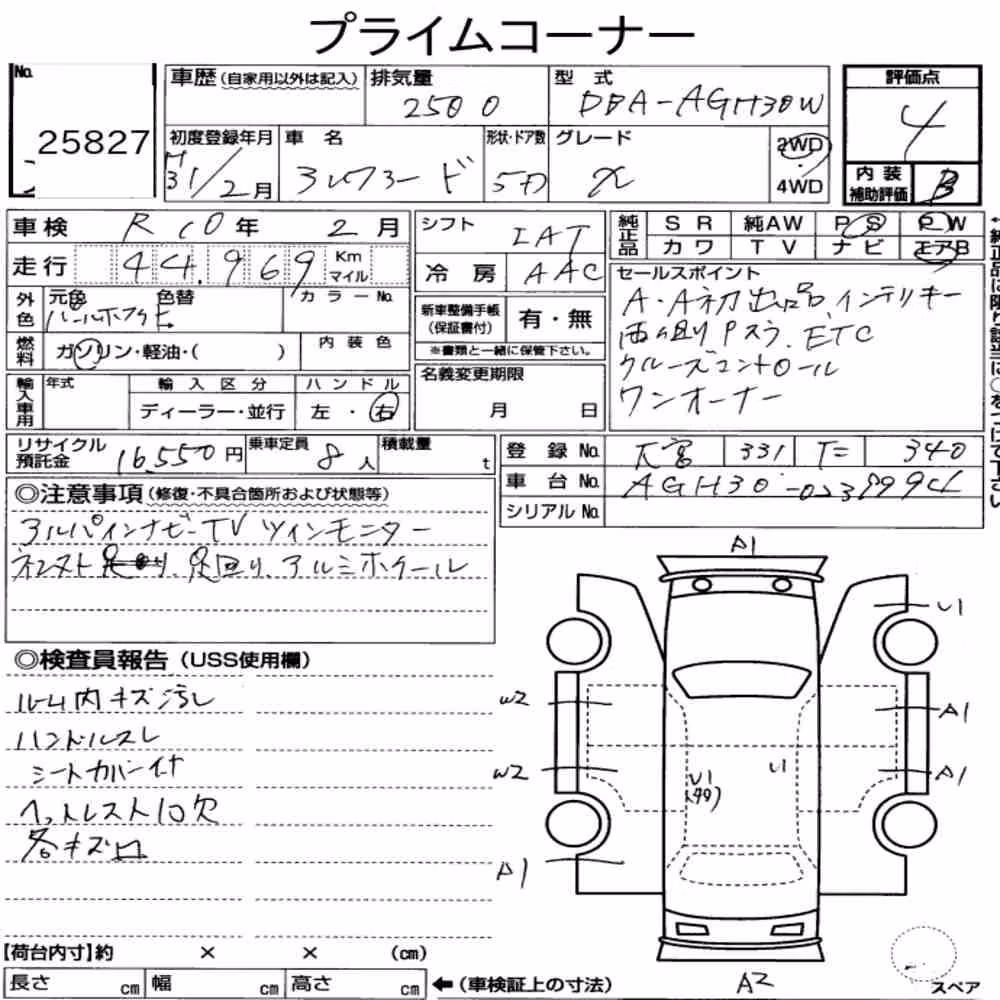 プライムコーナー
No. 25827
車歴(自家用以外は記入)
排気量 2500
型式 DBA-AGH30W
評価点 4
初度登録年月 H31/2月
車名
形状・ドア数 5D
グレード X
2WD・4WD
内装補助評価 B
車検 R10年2月
シフト IAT
純正品 SR 純AW PS PW
カワ TV ナビ エアB
走行 44,969 Km マイル
冷房 AAC
セールスポイント
A・A初出品 インテリキー
両自動Pスラ、ETC
クルーズコントロール
ワンオーナー
外色 元色 色替 カラーNo.
パールホワイト
新車整備手帳(保証書付) 有・無
※書類と一緒に保管下さい。
燃料 ガソリン・軽油・( )
内装色
輸入車用 年式 輸入区分 ハンドル
ディーラー・並行 左・右
名義変更期限 月 日
←純正品に限り該当に○をつけて下さい
リサイクル預託金 16,550円
乗車定員 8人
積載量 t
登録No. 大宮 331 340
車台No. AGH30-
シリアルNo.
◎注意事項(修復・不具合箇所および状態等)
アルパインナビTV ツインモニター
足回り、アルミホイール
◎検査員報告(USS使用欄)
ルーム内キズ汚れ
ハンドルスレ
シートカバー付
ヘッドレスト1コ欠
各キズ凹
A1
U1
W2
A1
W2
A1
U1
U1
A1
A2
【荷台内寸】約 × × (cm)
長さ cm 幅 cm 高さ cm ←(車検証上の寸法)
スペア